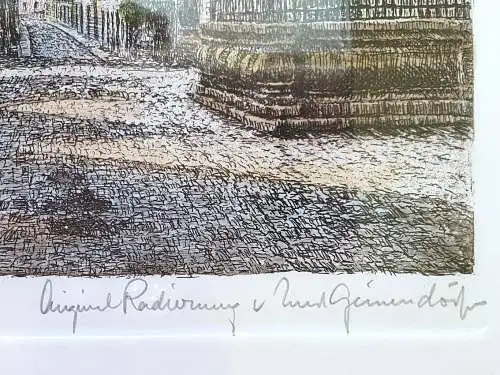 Original Radierung v Geinendörfer